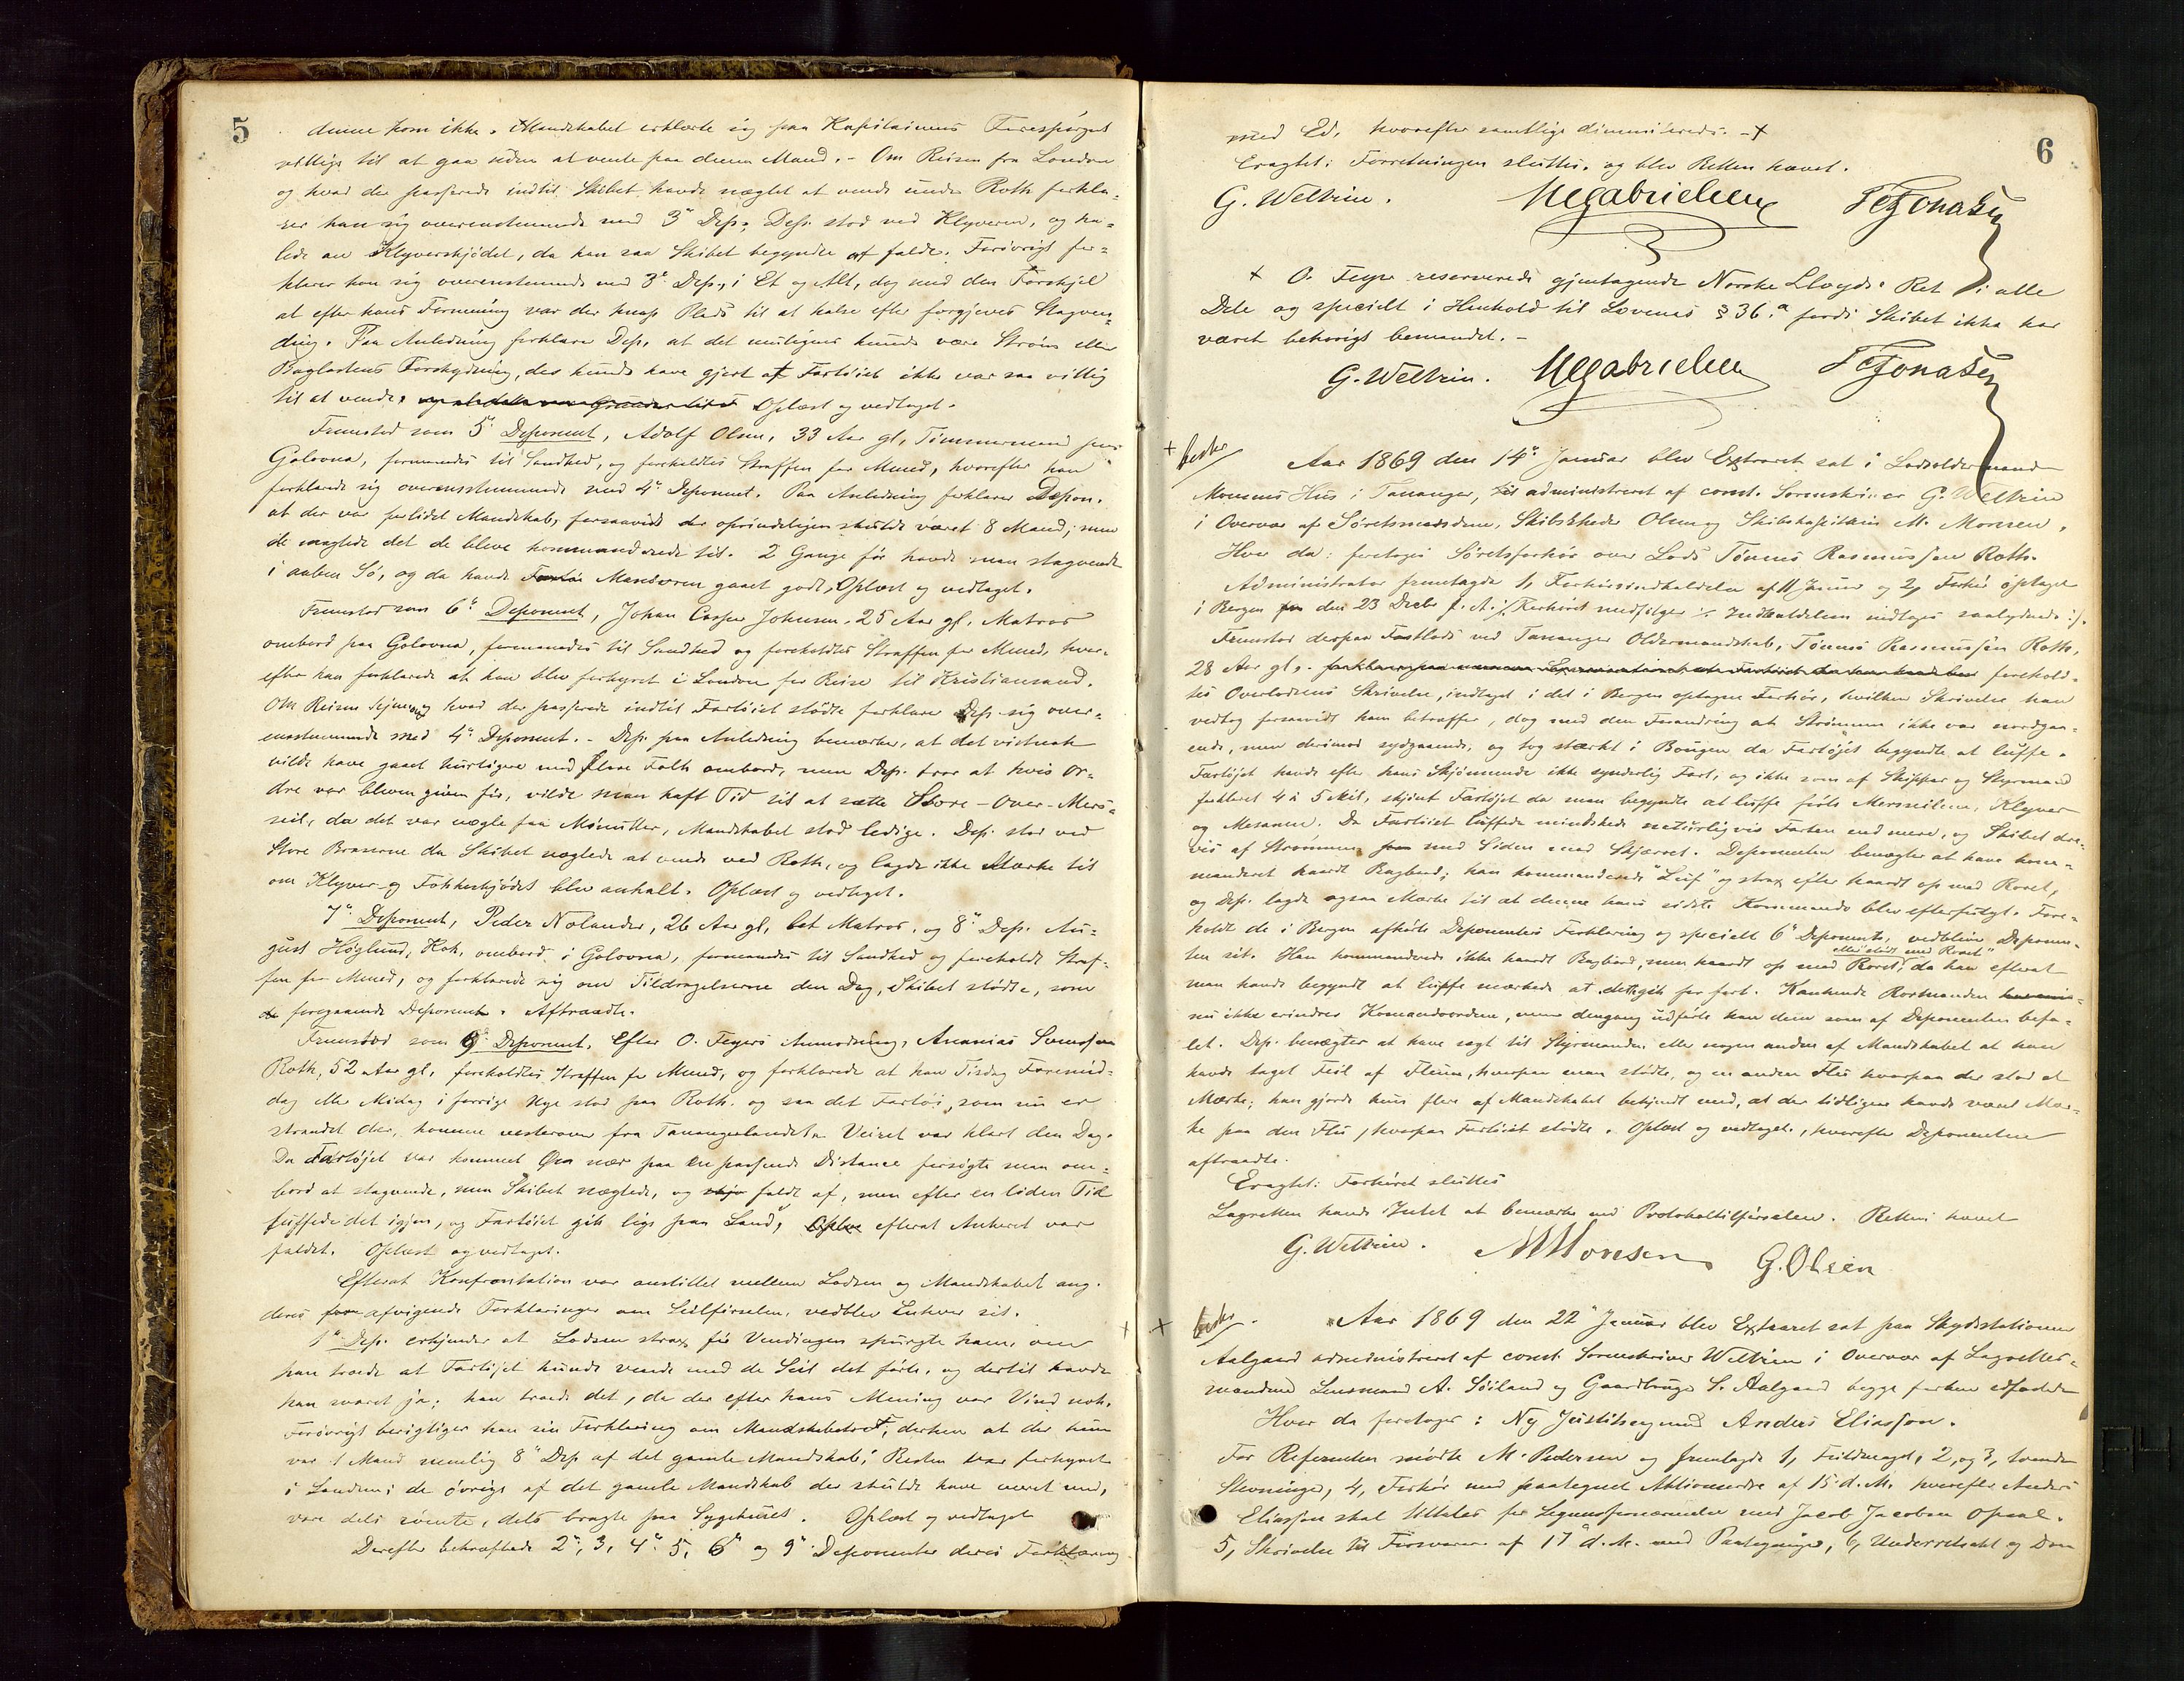 5
denne kom ikke. Mandskabet erklærte sig paa Kapitainens Forespørgsel
villige til at gaa uden at vente paa denne Mand. - Om Reisen fra London
og hvad der passerede indtil Skibet havde nægtet at vende under Roth forkla-
rer han sig overensstemmende med 3die Dep. Dep. stod ved Klyveren, og ha-
lede an Klyverskjødet, da han saa Skibet begyndte at falde. Forøvrigt for-
klarer han sig overensstemmende med 3die Dep., i Et og Alt, dog med den Forskjel
at efter hans Formening var der knap Plads til at halse efter forgjeves Stagven-
ding. Paa Anledning forklarer Dep. at det muligens kunde være Strøm eller
Baglastens Forskydning, der kunde have gjort at Fartøiet ikke var saa villig
til at vende. Oplæst og vedtaget.
Fremstod som 5te Deponent, Adolf Olsen, 33 Aar gl. Tømmermand paa
Golovna, formanedes til Sandhed, og foreholdtes Straffen for Meened, hvorefter han
forklarede sig overensstemmende med 4de Deponent. Paa Anledning forklarer Depon.
at der var forlidet Mandskab, forsaavidt der oprindeligen skulde været 8 Mand; men
de magtede det de bleve kommanderede til. 2 Gange før havde man stagvendt
i aaben Sø, og da havde Manøvren gaaet godt, Oplæst og vedtaget.
Fremstod som 6te Deponent, Johan Casper Johnsen, 25 Aar gl. Matros
ombord paa Golovna, formanedes til Sandhed og foreholdtes Straffen for Meened, hvor-
efter han forklarede at han blev forhyret i London for Reise til Kristiansand.
Om Reisen hjem og hvad der passerede indtil Fartøiet stødte forklarer Dep. sig over-
ensstemmende med 4de Deponent. - Dep. paa Anledning bemærker, at det vistnok
vilde have gaaet hurtigere med flere Folk ombord, men Dep. tror at hvis Or-
dre var bleven given før, vilde man haft Tid til at sætte Store-Over-Mers-
seil, da det var nogle faa Minutter, Mandskabet stod ledige. Dep. stod ved
Store Braserne da Skibet nægtede at vende ved Roth, og lagde ikke Mærke til
om Klyver og Fokkeskjødet blev anhalt. Oplæst og vedtaget.
7de Deponent, Peder Nolander, 26 Aar gl, let Matros, og 8de Dep. Au-
gust Höglund, Kok, ombord i Golovna, formanedes til Sandhed og foreholdt Straf-
fen for Meened, og forklarede sig om Tildragelserne den Dag, Skibet stødte, som
foregaaende Deponent. Aftraadte.
Fremstod som 9de Deponent, Efter O. Feyers Anmodning, Ananias Svensen
Roth, 52 Aar gl, foreholdtes Straffen for Meened, og forklarede at han Tirsdag Formid-
dag eller Midag i forrige Uge stod paa Roth og saa det Fartøi, som nu er
strandet der, komme vesterover fra Tanangerlandet. Veiret var klart den Dag.
Da Fartøjet var kommet Øen nær paa en passende Distance forsøgte man om-
bord at stagvende, men Skibet nægtede, og faldt af, men efter en liden Tid
luffede det igjen, og Fartøiet gik lige paa Land, efterat Ankeret var
faldet. Oplæst og vedtaget.
Efterat Konfrontation var anstillet mellem Lodsen og Mandskabet ang.
deres afvigende Forklaringer om Seilførselen, vedblev Enhver sit.
1ste Dep. erkjender at Lodsen strax før Vendingen spurgte ham, om
han troede at Fartøjet kunde vende med de Seil det førte, og dertil havde
han svaret ja; han troede det, da der efter hans Mening var Vind nok.
Forøvrigt berigtiger han sin Forklaring om Mandskabet, derhen at der kun
var 1 Mand nemlig 8de Dep af det gamle Mandskab; Resten var forhyret
i London; de øvrige af det gamle Mandskab der skulde have været med,
vare dels rømte, dels bragte paa Sygehuset. Oplæst og vedtaget
Derefter bekræftede 2den, 3, 4de 5, 6te og 9de Deponenter deres Forklaring
6
med Ed, hvorefter samtlige dimmiteredes. - +
Eragtet: Forretningen sluttes, og blev Retten hævet.
G. Weltzin. M Gabrielsen T Jonasen
+ O. Feyer reserverede gjentagende Norske Lloyds Ret i alle
Dele og specielt i Henhold til Lovenes § 36.a fordi Skibet ikke har
været behørigt bemandet. -
G. Weltzin. M Gabrielsen T Jonasen
+
Aar 1869 den 14de Januar blev Extraret sat i Lodsoldermand
Monsens Hus i Tananger, administreret af const. Sorenskriver G. Weltzin
i Overvær af Søretsmændene, Skibsreder Olsen og Skibskapitain M. Monsen.
Hvor da: foretoges Søretsforhør over Lods Tønnes Rasmussen Roth.
Administrator fremlagde 1, Forhørsindkaldelse af 11 Januar og 2, Forhør optaget
i Bergen den 23 Decbr f. A. ./. Forhøret medfølger ./. Indkaldelsen indtages saalydende :/:
Fremstod derpaa Fastlods ved Tananger Oldermandskab, Tønnes Rasmussen Roth,
28 Aar gl. forehold-
tes Overlodsens Skrivelse, indtaget i det i Bergen optagne Forhør, hvilken Skrivelse han
vedtog forsaavidt ham betræffer, dog med den Forandring at Strømmen ikke var nordgaa-
ende, men derimod sydgaaende, og tog stærkt i Bougen da Fartøjet begyndte at luffe.
Fartøjet havde efter hans Skjønnende ikke synderlig Fart, og ikke som af Skipper og Styrmand
forklaret 4 à 5 Mil, skjønt Fartøjet da man begyndte at luffe førte Merseseilene, Klyver
og Mesanen. Da Fartøiet luffede mindskede naturligvis Farten end mere, og Skibet dre-
ves af Strømmen med Siden mod Skjæret. Deponenten benægter at have kom-
manderet haardt Bagbord; han kommanderede "Luf" og strax efter haardt op med Roret,
og Dep. lagde ogsaa Mærke til at denne hans sidste Kommando blev efterfulgt. Fore-
holdt de i Bergen afhørte Deponenters Forklaring og specielt 6te Deponents, vedbliver Deponen-
ten sit. Han kommanderede ikke haardt Bagbord, men haardt op med Roret, eller "støt med Roret" da han efterat
man havde begyndt at luffe mærkede at det gik for fort. Kanhænde Rormanden
nu ikke erindrer Komandoordene, men dengang udførte han dem som af Deponenten befa-
let. Dep. benægter at have sagt til Styrmanden eller nogen anden af Mandskabet at han
havde taget Feil af Fluen, hvorpaa man stødte, og en anden Flu hvorpaa der stod et
Mærke; han gjorde kun flere af Mandskabet bekjendt med, at der tidligere havde været Mær-
ke paa den Flu, hvorpaa Fartøiet stødte. Oplæst og vedtaget, hvorefter Deponenten
aftraadte.
Eragtet: Forhøret sluttes
Lagretten havde Intet at bemærke ved Protokoltilførselen. Retten hævet
G. Weltzin. M Monsen G. Olsen
+
Aar 1869 den 22de Januar blev Extraret sat paa Skydsstationen
Aalgaard administreret af const. Sorenskriver Weltzin i Overvær af Lagrettes-
mændene Lensmand A. Søiland og Gaardbruger S. Aalgaard begge forhen edfæstede
Hvor da foretoges: Ny Justitssag mod Anders Eliassen.
For Referenten mødte M. Pedersen og fremlagde 1, Fuldmagt, 2, og 3, tvende
Stevninger, 4, Forhør med paategnet Aktionsordre af 15. d. M. hvorefter Anders
Eliassen skal tiltales for Legemsfornærmelse mod Jacob Jacobsen Opsal.
5, Skrivelse til Forsvarer af 17de d. M. med Paategninger, 6, Underretsakt og Dom